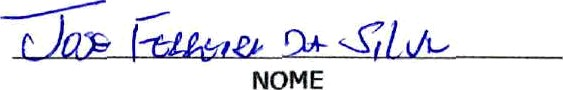 Jose Ferreira Da Silva
NOME